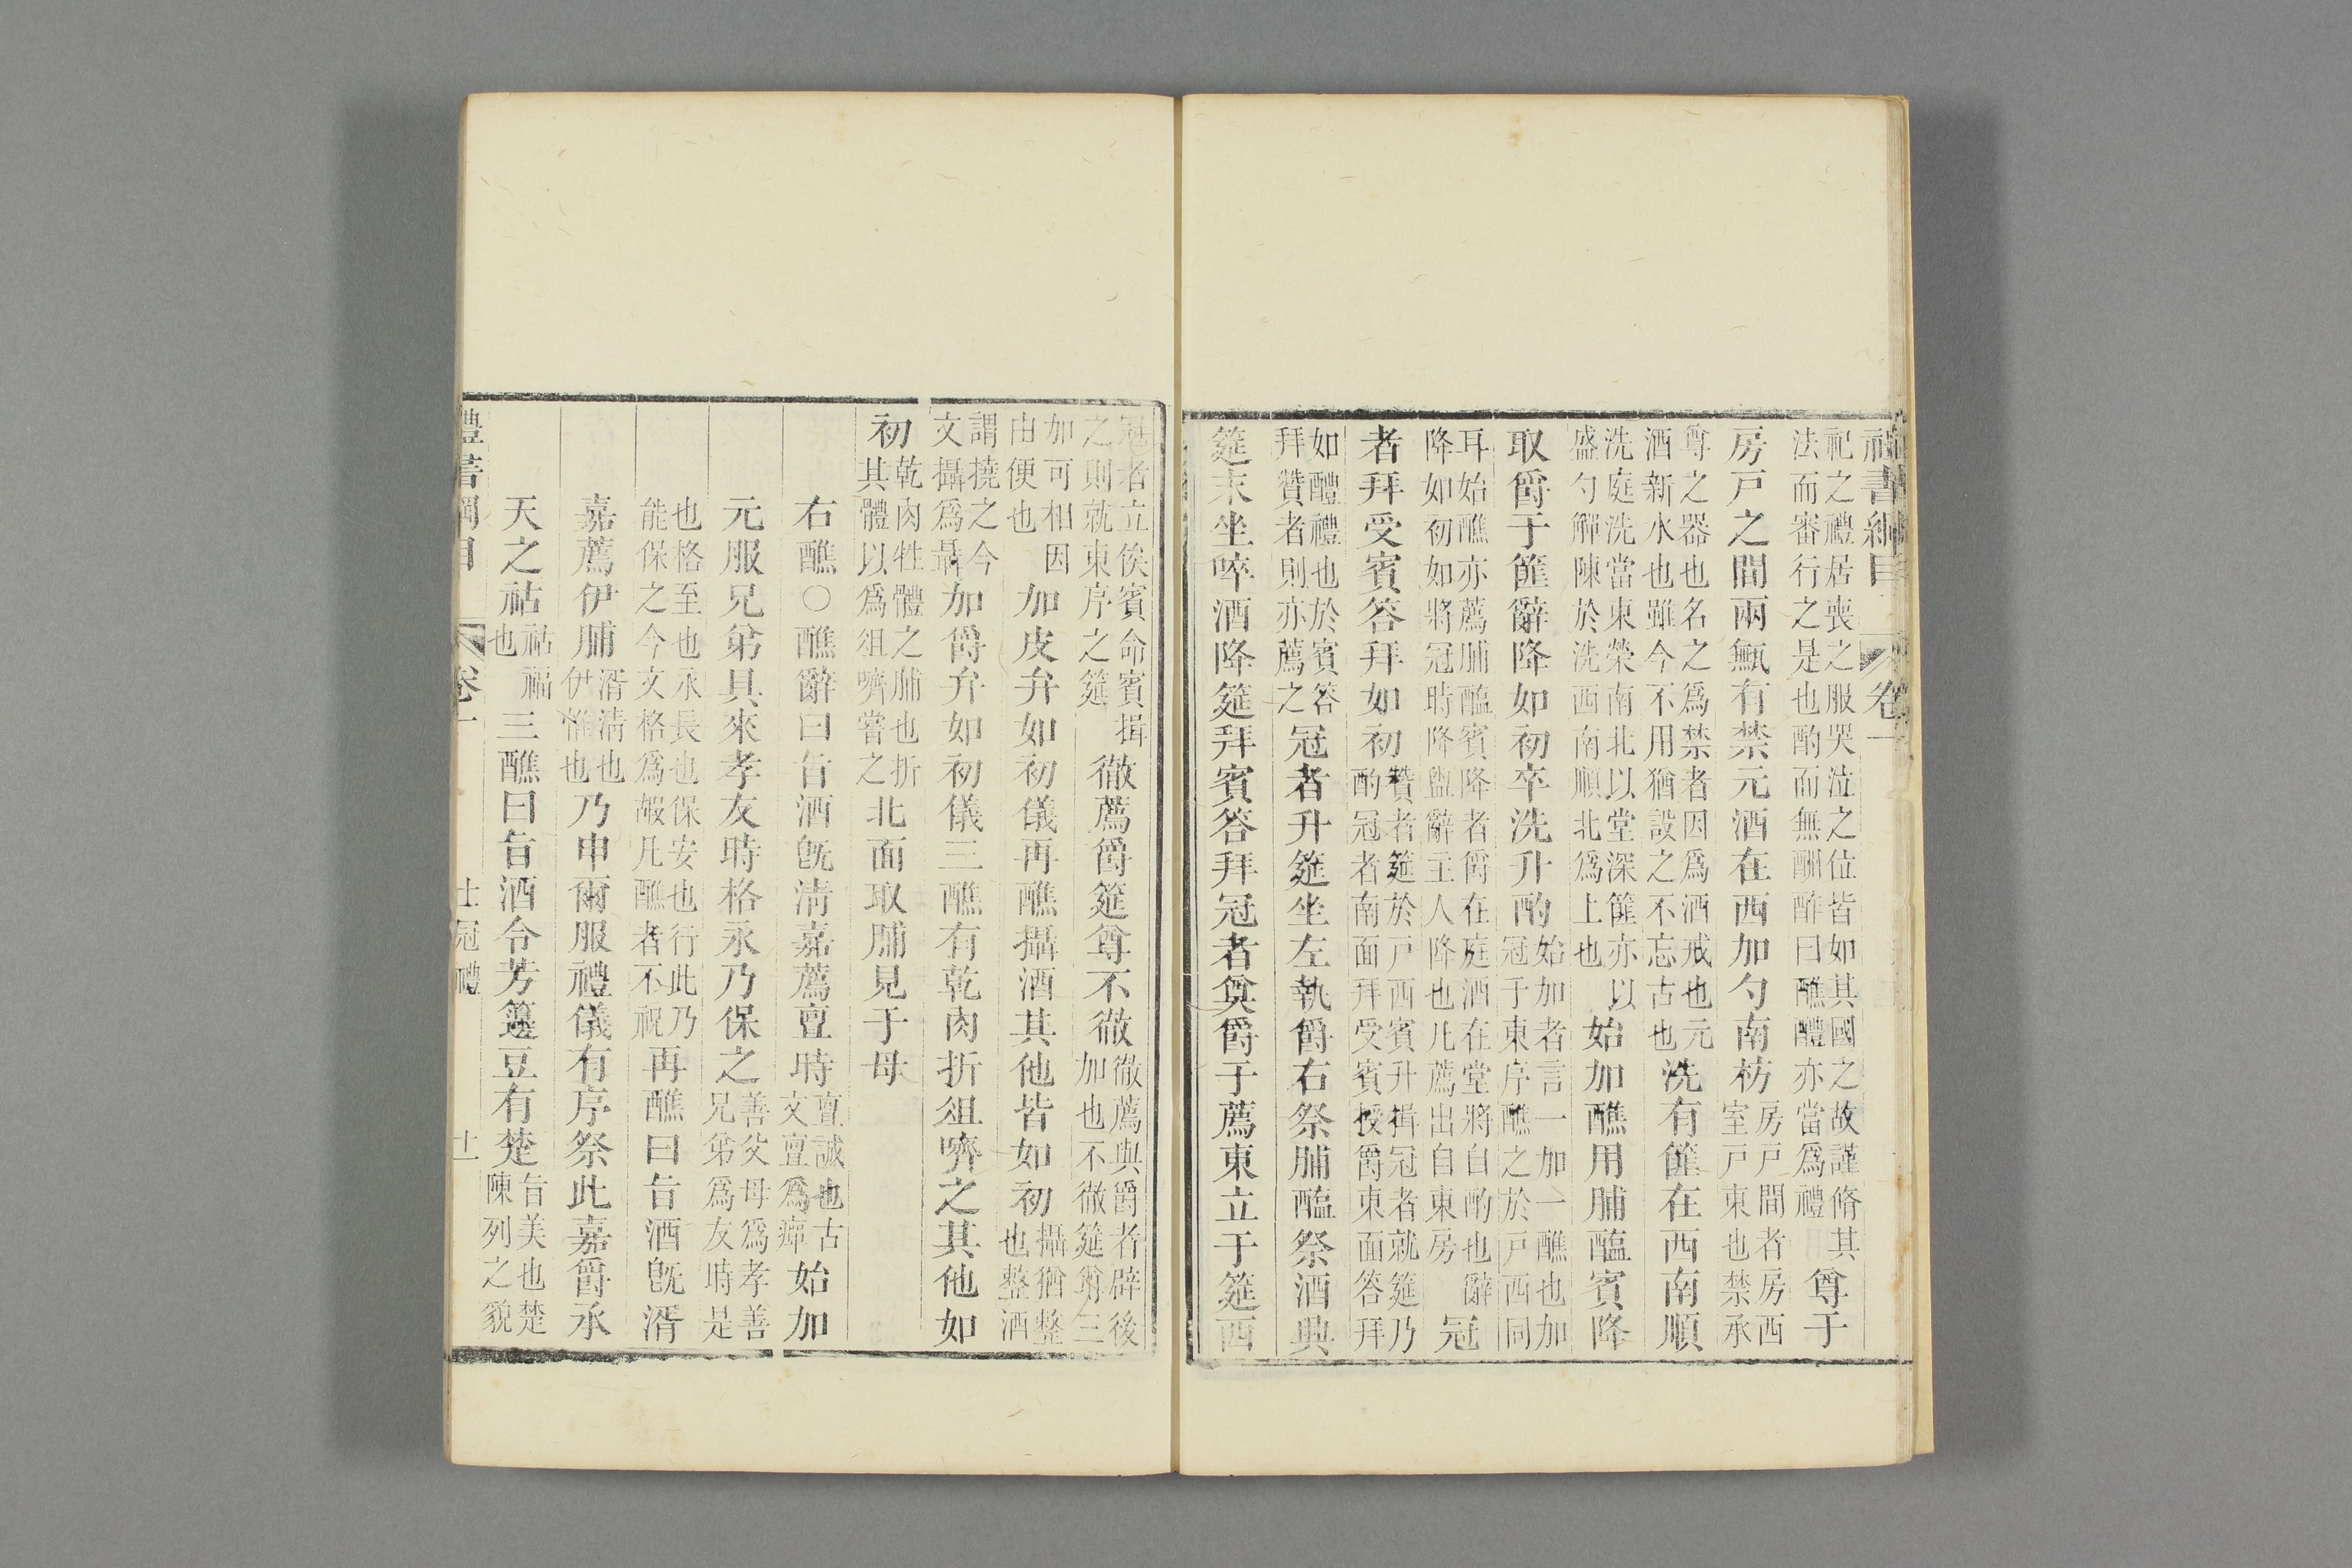 禮書綱目 卷一
祀之禮居喪之服哭泣之位皆如其國之故謹脩其
法而審行之是也酌而無酬酢曰醮醴亦當爲禮
尊于
房戸之間兩甒有禁元酒在西加勺南枋
房戸間者房西
室戸東也禁承
尊之器也名之爲禁者因爲酒戒也元
酒新水也雖今不用猶設之不忘古也
洗有篚在西南順
洗庭洗當東榮南北以堂深篚亦以
盛勺觶陳於洗西南順北爲上也
始加醮用脯醢賓降
取爵于篚辭降如初卒洗升酌
始加者言一加一醮也加
冠于東序醮之於戸西同
耳始醮亦薦脯醢賓降者爵在庭酒在堂將自酌也辭
降如初如將冠時降盥辭主人降也凡薦出自東房
冠
者拜受賓答拜如初
贊者筵於戸西賓升揖冠者就筵乃
酌冠者南面拜受賓授爵東面答拜
如醴禮也於賓答
拜贊者則亦薦之
冠者升筵坐左執爵右祭脯醢祭酒興
筵末坐啐酒降筵拜賓答拜冠者奠爵于薦東立于筵西
冠者立俟賓命賓揖
之則就東序之筵
徹薦爵筵尊不徹
徹薦與爵者辟後
加也不徹筵尊三
加可相因
由便也
加皮弁如初儀再醮攝酒其他皆如初
攝猶整
也整酒
謂撓之今
文攝爲聶
加爵弁如初儀三醮有乾肉折俎嚌之其他如
初
乾肉牲體之脯也折
其體以爲俎嚌嘗之
北面取脯見于母
右醮○醮辭曰旨酒旣淸嘉薦亶時
亶誠也古
文亶爲癉
始加
元服兄弟具來孝友時格永乃保之
善父母爲孝善
兄弟爲友時是
也格至也永長也保安也行此乃
能保之今文格爲嘏凡醮者不祝
再醮曰旨酒旣湑
嘉薦伊脯
湑淸也
伊惟也
乃申爾服禮儀有序祭此嘉爵承
天之祜
祜福
也
三醮曰旨酒令芳籩豆有楚
旨美也楚
陳列之貌
禮書綱目 卷一 士冠禮 十一